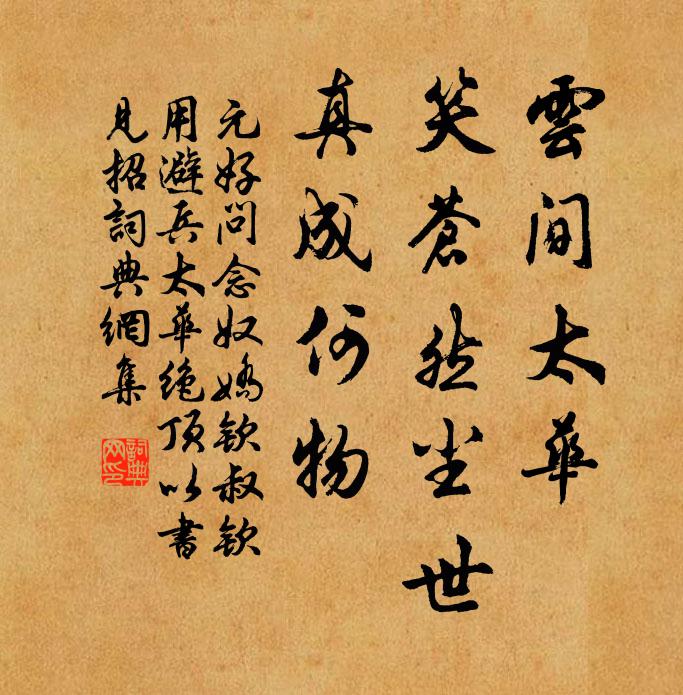 雲間太華
笑蒼然尘世
真成何物
元好問念奴嬌欽叔欽
用避兵太華絶頂以書
見招詞典網集
詞典
网印